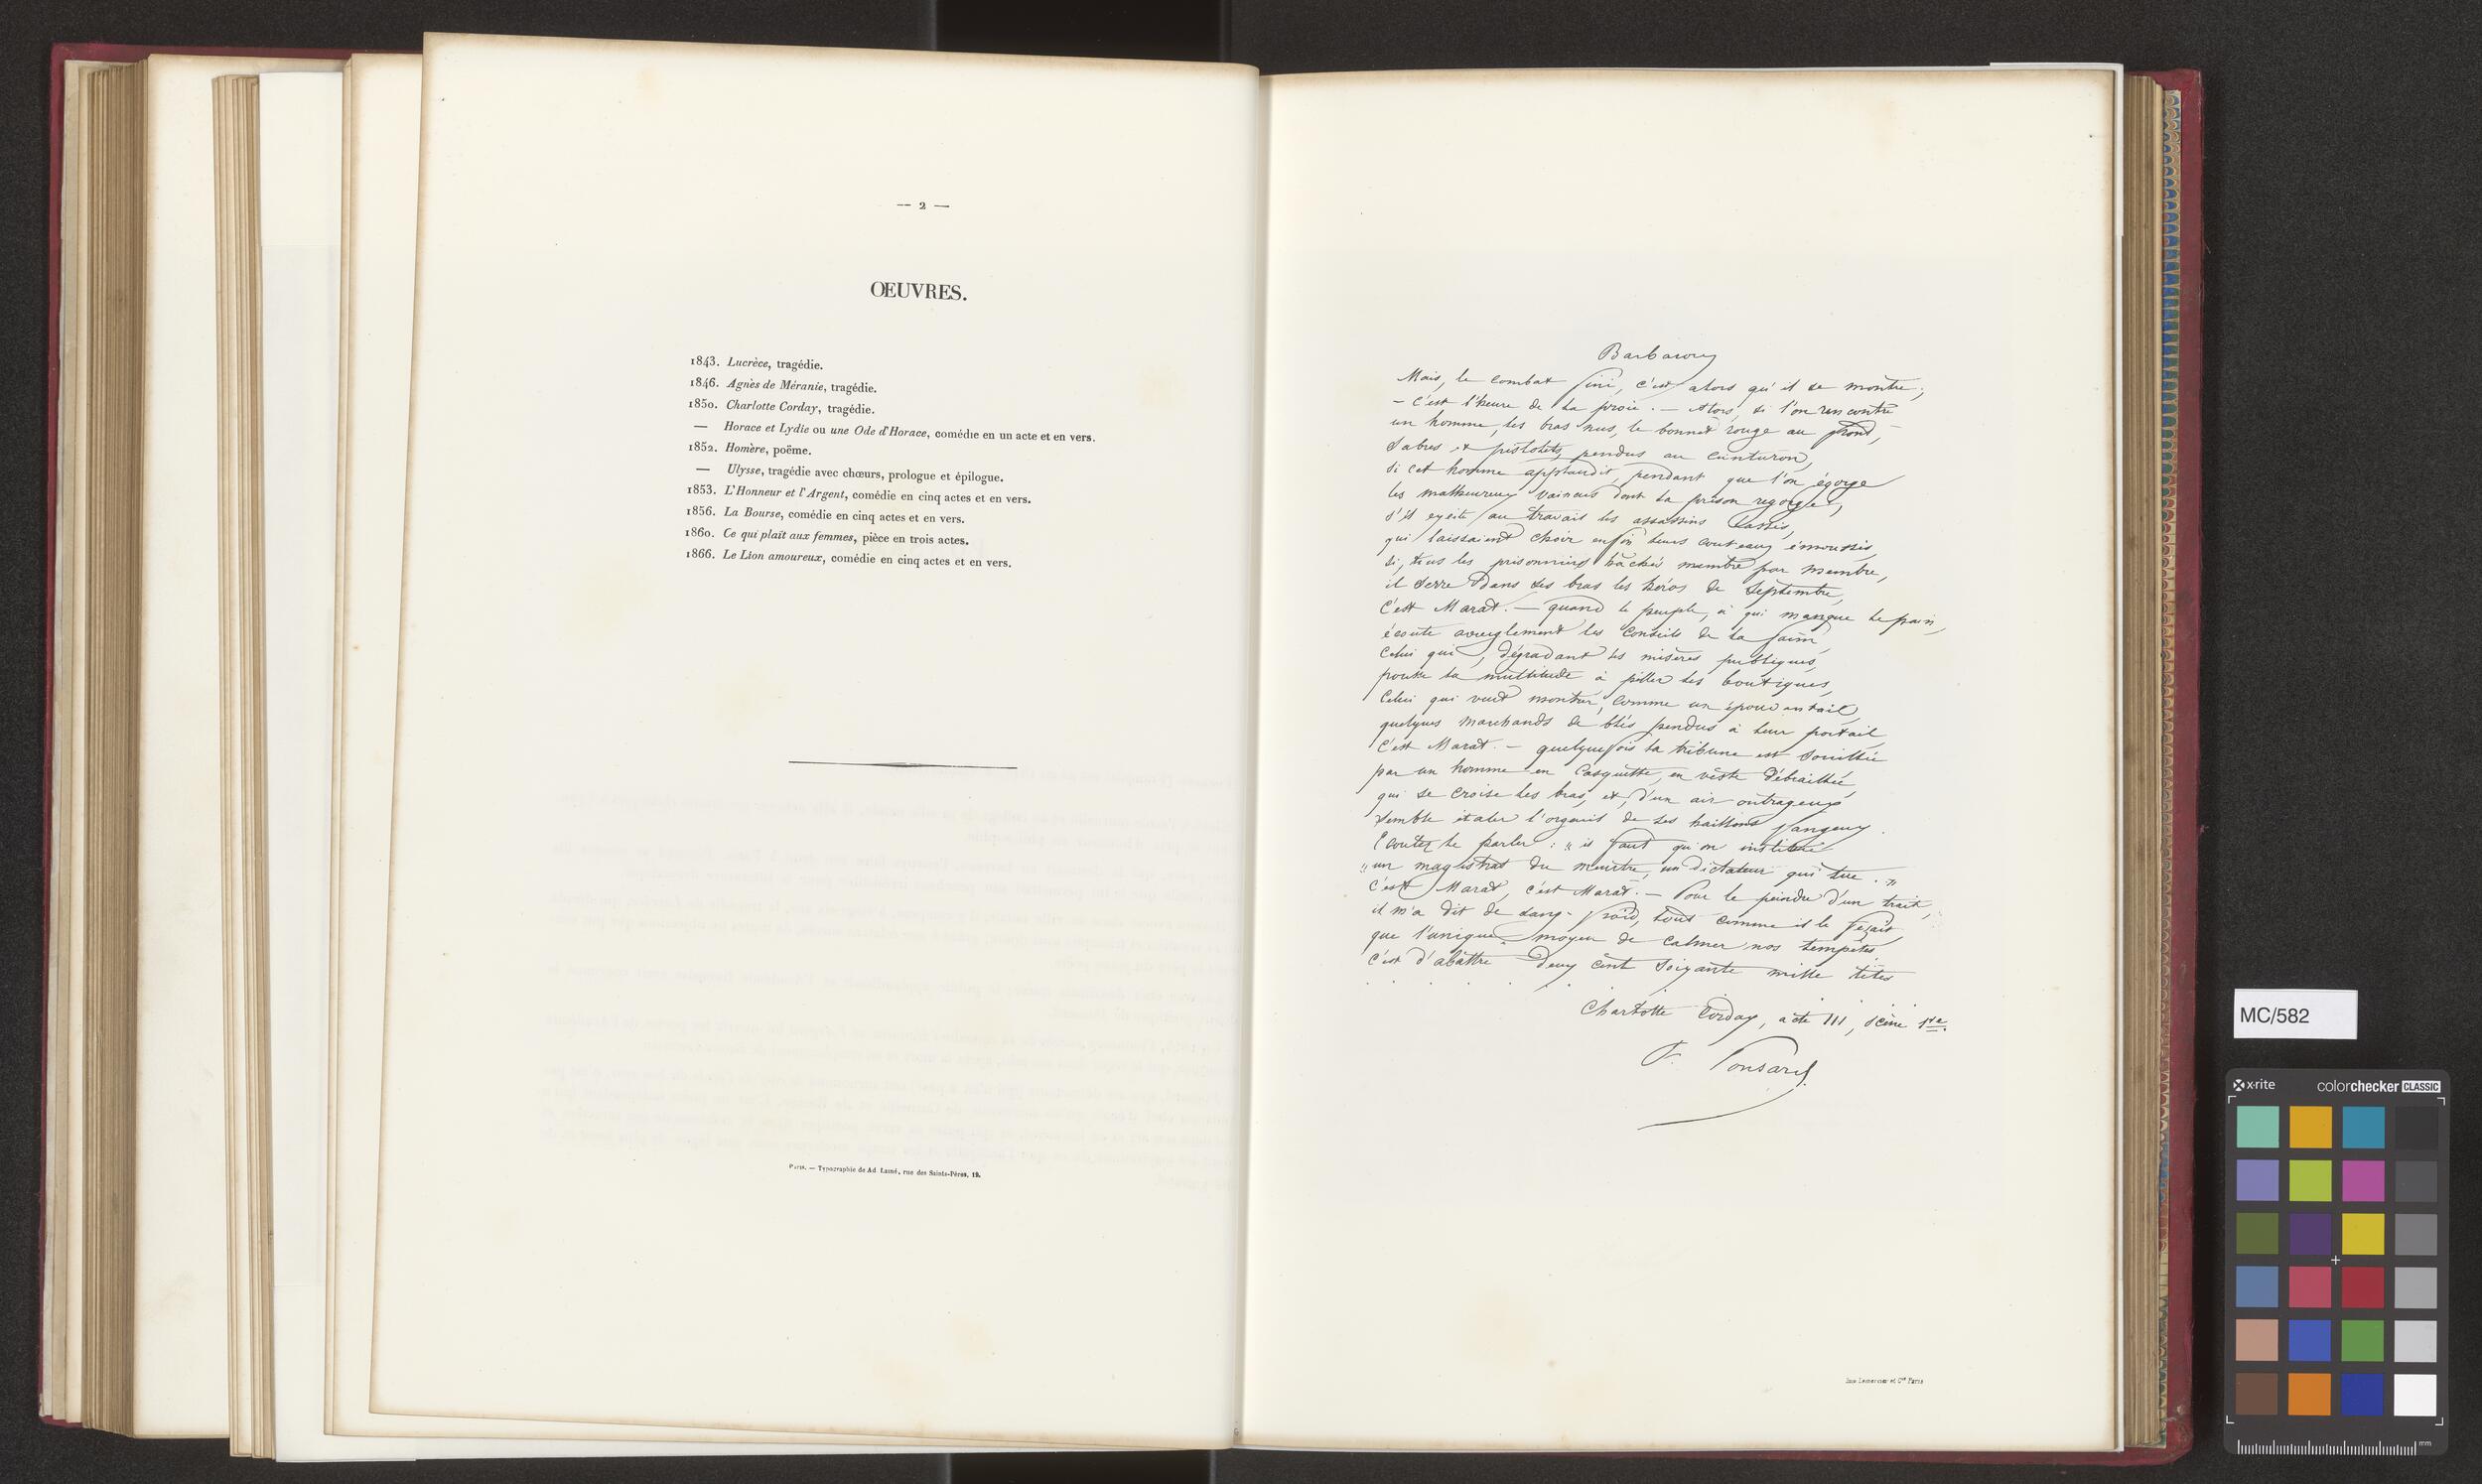 — 2 —
ŒUVRES.
1843. Lucrèce, tragédie.
1846. Agnès de Méranie, tragédie.
1850. Charlotte Corday, tragédie.
— Horace et Lydie ou une Ode d'Horace, comédie en un acte et en vers.
1852. Homère, poëme.
— Ulysse, tragédie avec chœurs, prologue et épilogue.
1853. L'Honneur et l'Argent, comédie en cinq actes et en vers.
1856. La Bourse, comédie en cinq actes et en vers.
1860. Ce qui plaît aux femmes, pièce en trois actes.
1866. Le Lion amoureux, comédie en cinq actes et en vers.
Paris. — Typographie de Ad. Lainé, rue des Saints-Pères, 19.
Barbaroux
Mais, le combat fini, c'est alors qu'il se montre;
- C'est l'heure de la proie. — Alors, si l'on rencontre
un homme, les bras nus, le bonnet rouge au front,
sabres et pistolets pendus au ceinturon,
si cet homme applaudit, pendant que l'on égorge
les malheureux vaincus dont la prison regorge,
s'il excite au travail les assassins lassés,
qui laissaient choir enfin leurs couteaux émoussés,
si, tous les prisonniers hachés membre par membre,
il serre dans ses bras les héros de Septembre,
C'est Marat. — quand le peuple, à qui manque le pain,
écoute aveuglement les conseils de la faim,
Celui qui, dégradant les misères publiques,
pousse la multitude à piller les boutiques,
Celui qui veut montrer, comme un épouvantail,
quelques marchands de blés pendus à leur portail,
C'est Marat. — quelquefois la tribune est souillée
par un homme en casquette, en veste débraillée,
qui se croise les bras, et, d'un air outrageux
semble étaler l'orgueil de ses haillons fangeux.
Ecoutez le parler : « il faut qu'on institue
« un magistrat du meurtre, un dictateur qui tue. »
C'est Marat, c'est Marat. — Pour le peindre d'un trait,
il m'a dit de sang-froid, tout comme il le ferait,
que l'unique moyen de calmer nos tempêtes,
c'est d'abattre deux cent soixante mille têtes
. . . . . .
Charlotte Corday, acte III, scène 1re.
F. Ponsard
Imp Lemercier et Cie Paris
MC/582
x-rite
colorchecker CLASSIC
mm